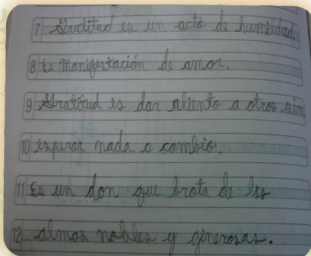 7 Gratitud es un acto de humildad
8 Es manifestación de amor.
9 Gratitud es dar aliento a otros sin
10 esperar nada a cambio.
11 Es un don que brota de las
12 almas nobles y generosas.